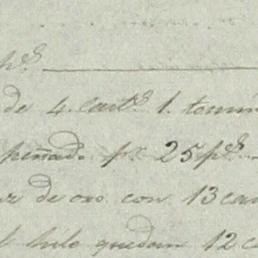 p.s
de 4. cart.s 1. tomin
peñad. pr. 25 p.s
de oro con 13 ca
hilo quedan 12 c